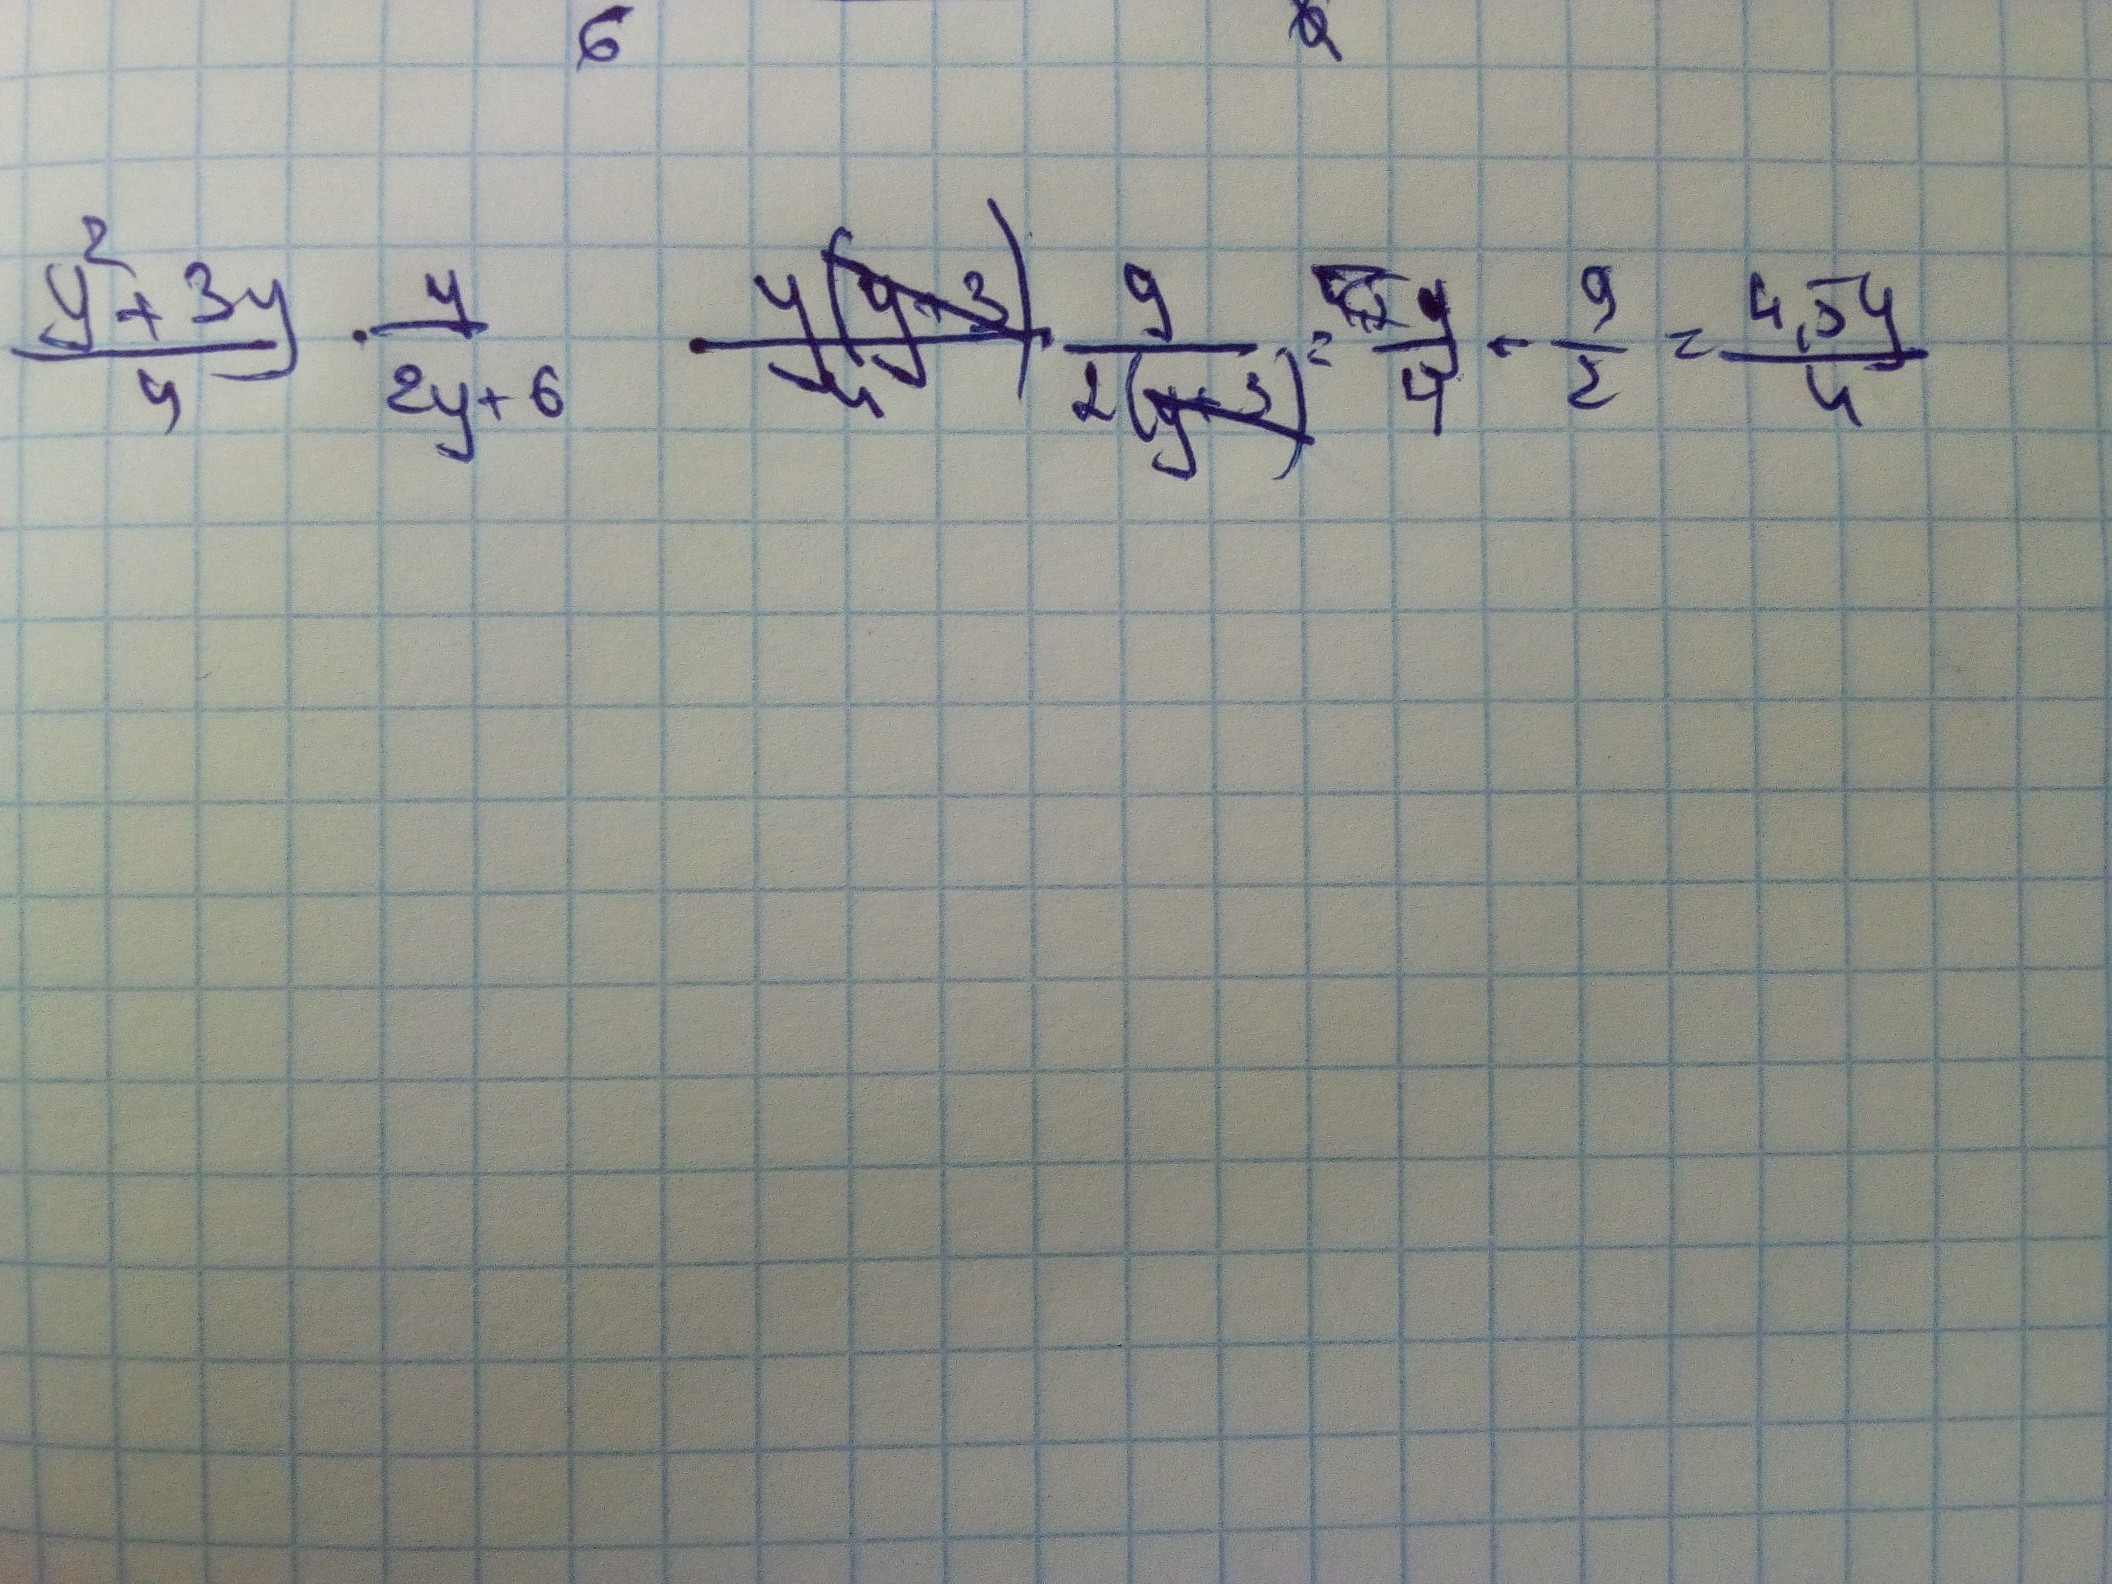 6
y² + 3y / 4 · y / 2y + 6 · y(y + 3) / 4 · 9 / 2(y + 3) = y / 4 · 9 / 2 = 4,5y / 4